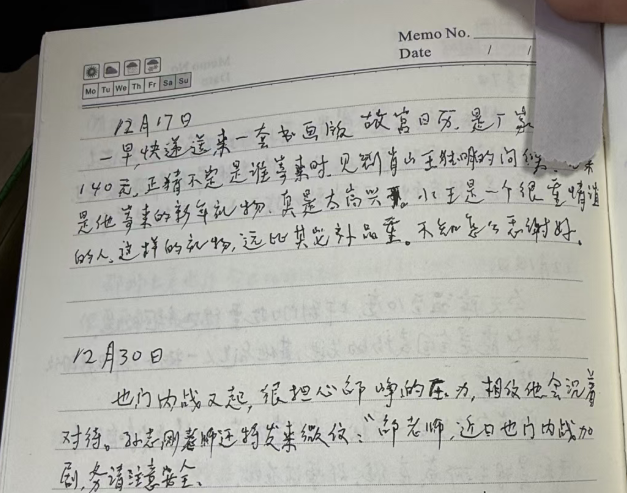 Memo No.
Date / /
Mo Tu We Th Fr Sa Su
12月17日
一早快递送来一套书画版故宫日历,是厂家
140元,正猜不定是谁寄来时,见到肖山王
的问候
是他寄来的新年礼物,真是太高兴了。小王是一个很重情谊
的人,这样的礼物,远比其它补品重。不知怎么感谢好。
12月30日
也门内战又起,很担心邵峥的压力,相信他会沉着
对待。孙志刚老师还特发来微信:“邵老师,近日也门内战加
剧,务请注意安全、